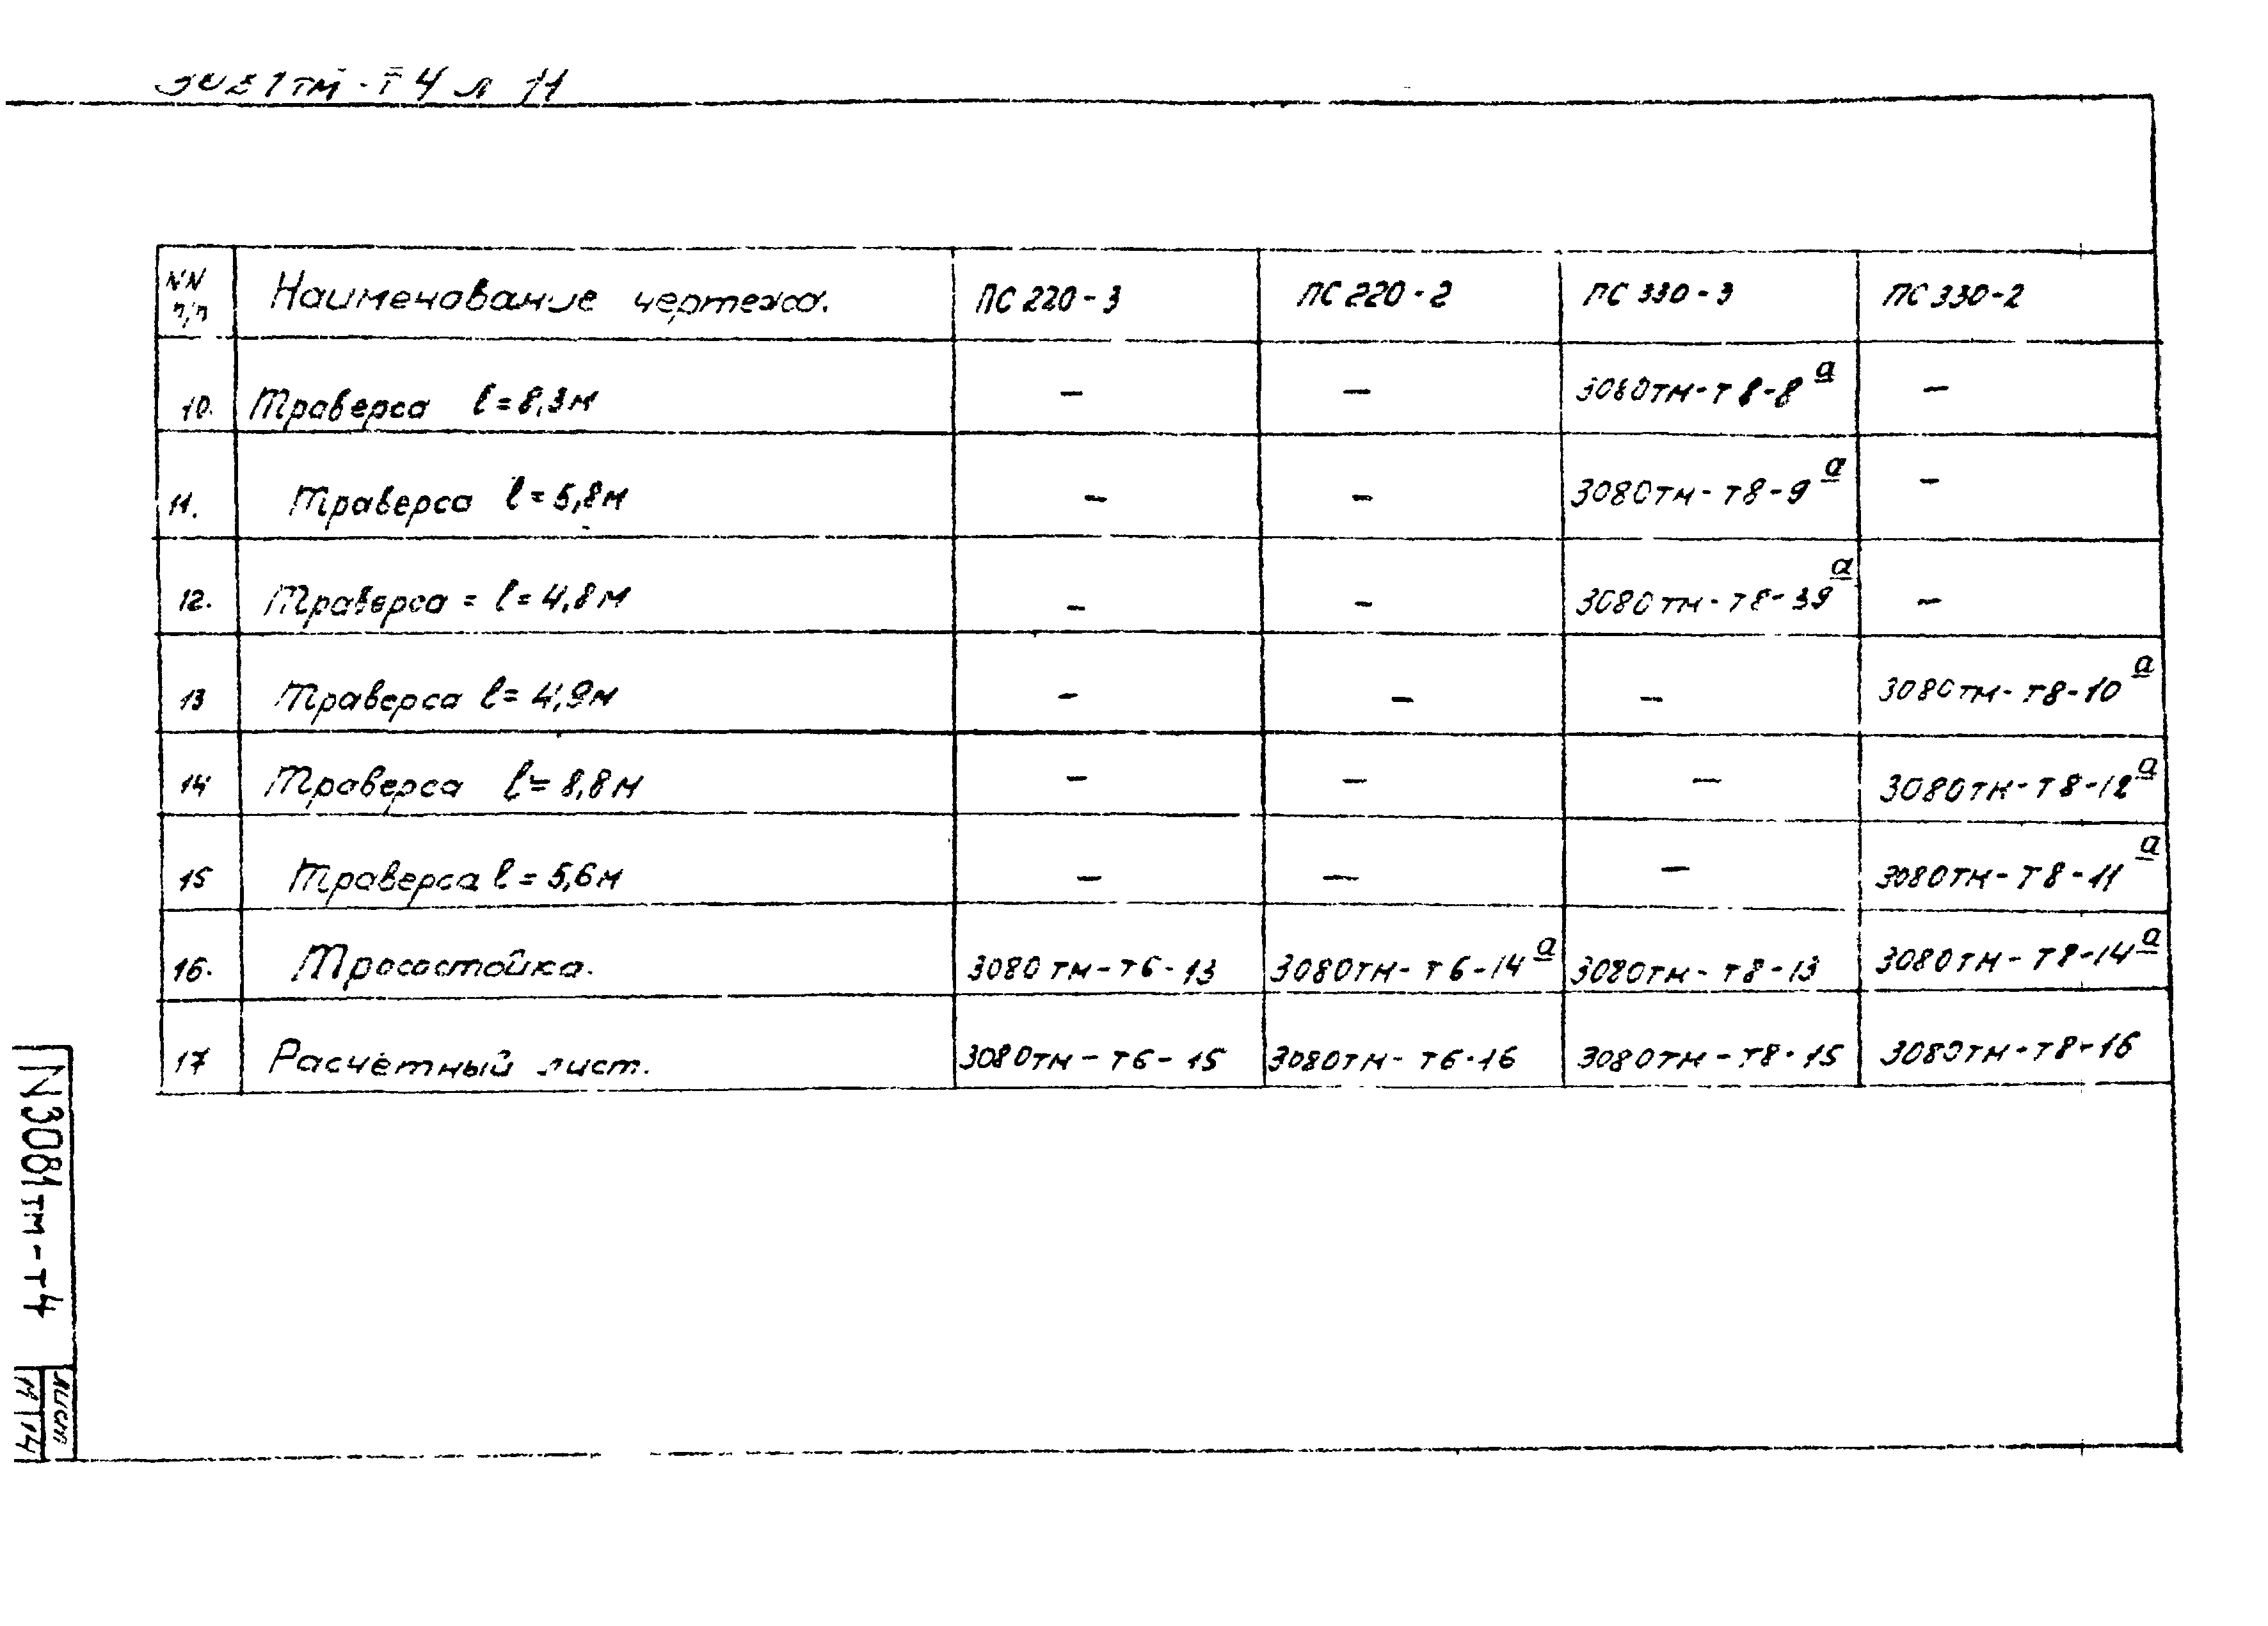 3081тм-т4 л 11
NN п/п Наименование чертежа. ПС 220-3 ПС 220-2 ПС 330-3 ПС 330-2
10. Траверса l=8,3м — — 3080тм-т8-8а —
11. Траверса l=5,8м — — 3080тм-т8-9а —
12. Траверса = l=4,8м — — 3080тм-т8-39а —
13 Траверса l=4,9м — — — 3080тм-т8-10а
14 Траверса l=8,8м — — — 3080тм-т8-12а
15 Траверса l=5,6м — — — 3080тм-т8-11а
16. Тросостойка. 3080тм-т6-13 3080тм-т6-14а 3080тм-т8-13 3080тм-т8-14а
17 Расчётный лист. 3080тм-т6-15 3080тм-т6-16 3080тм-т8-15 3080тм-т8-16
N3081тм-т4
лист